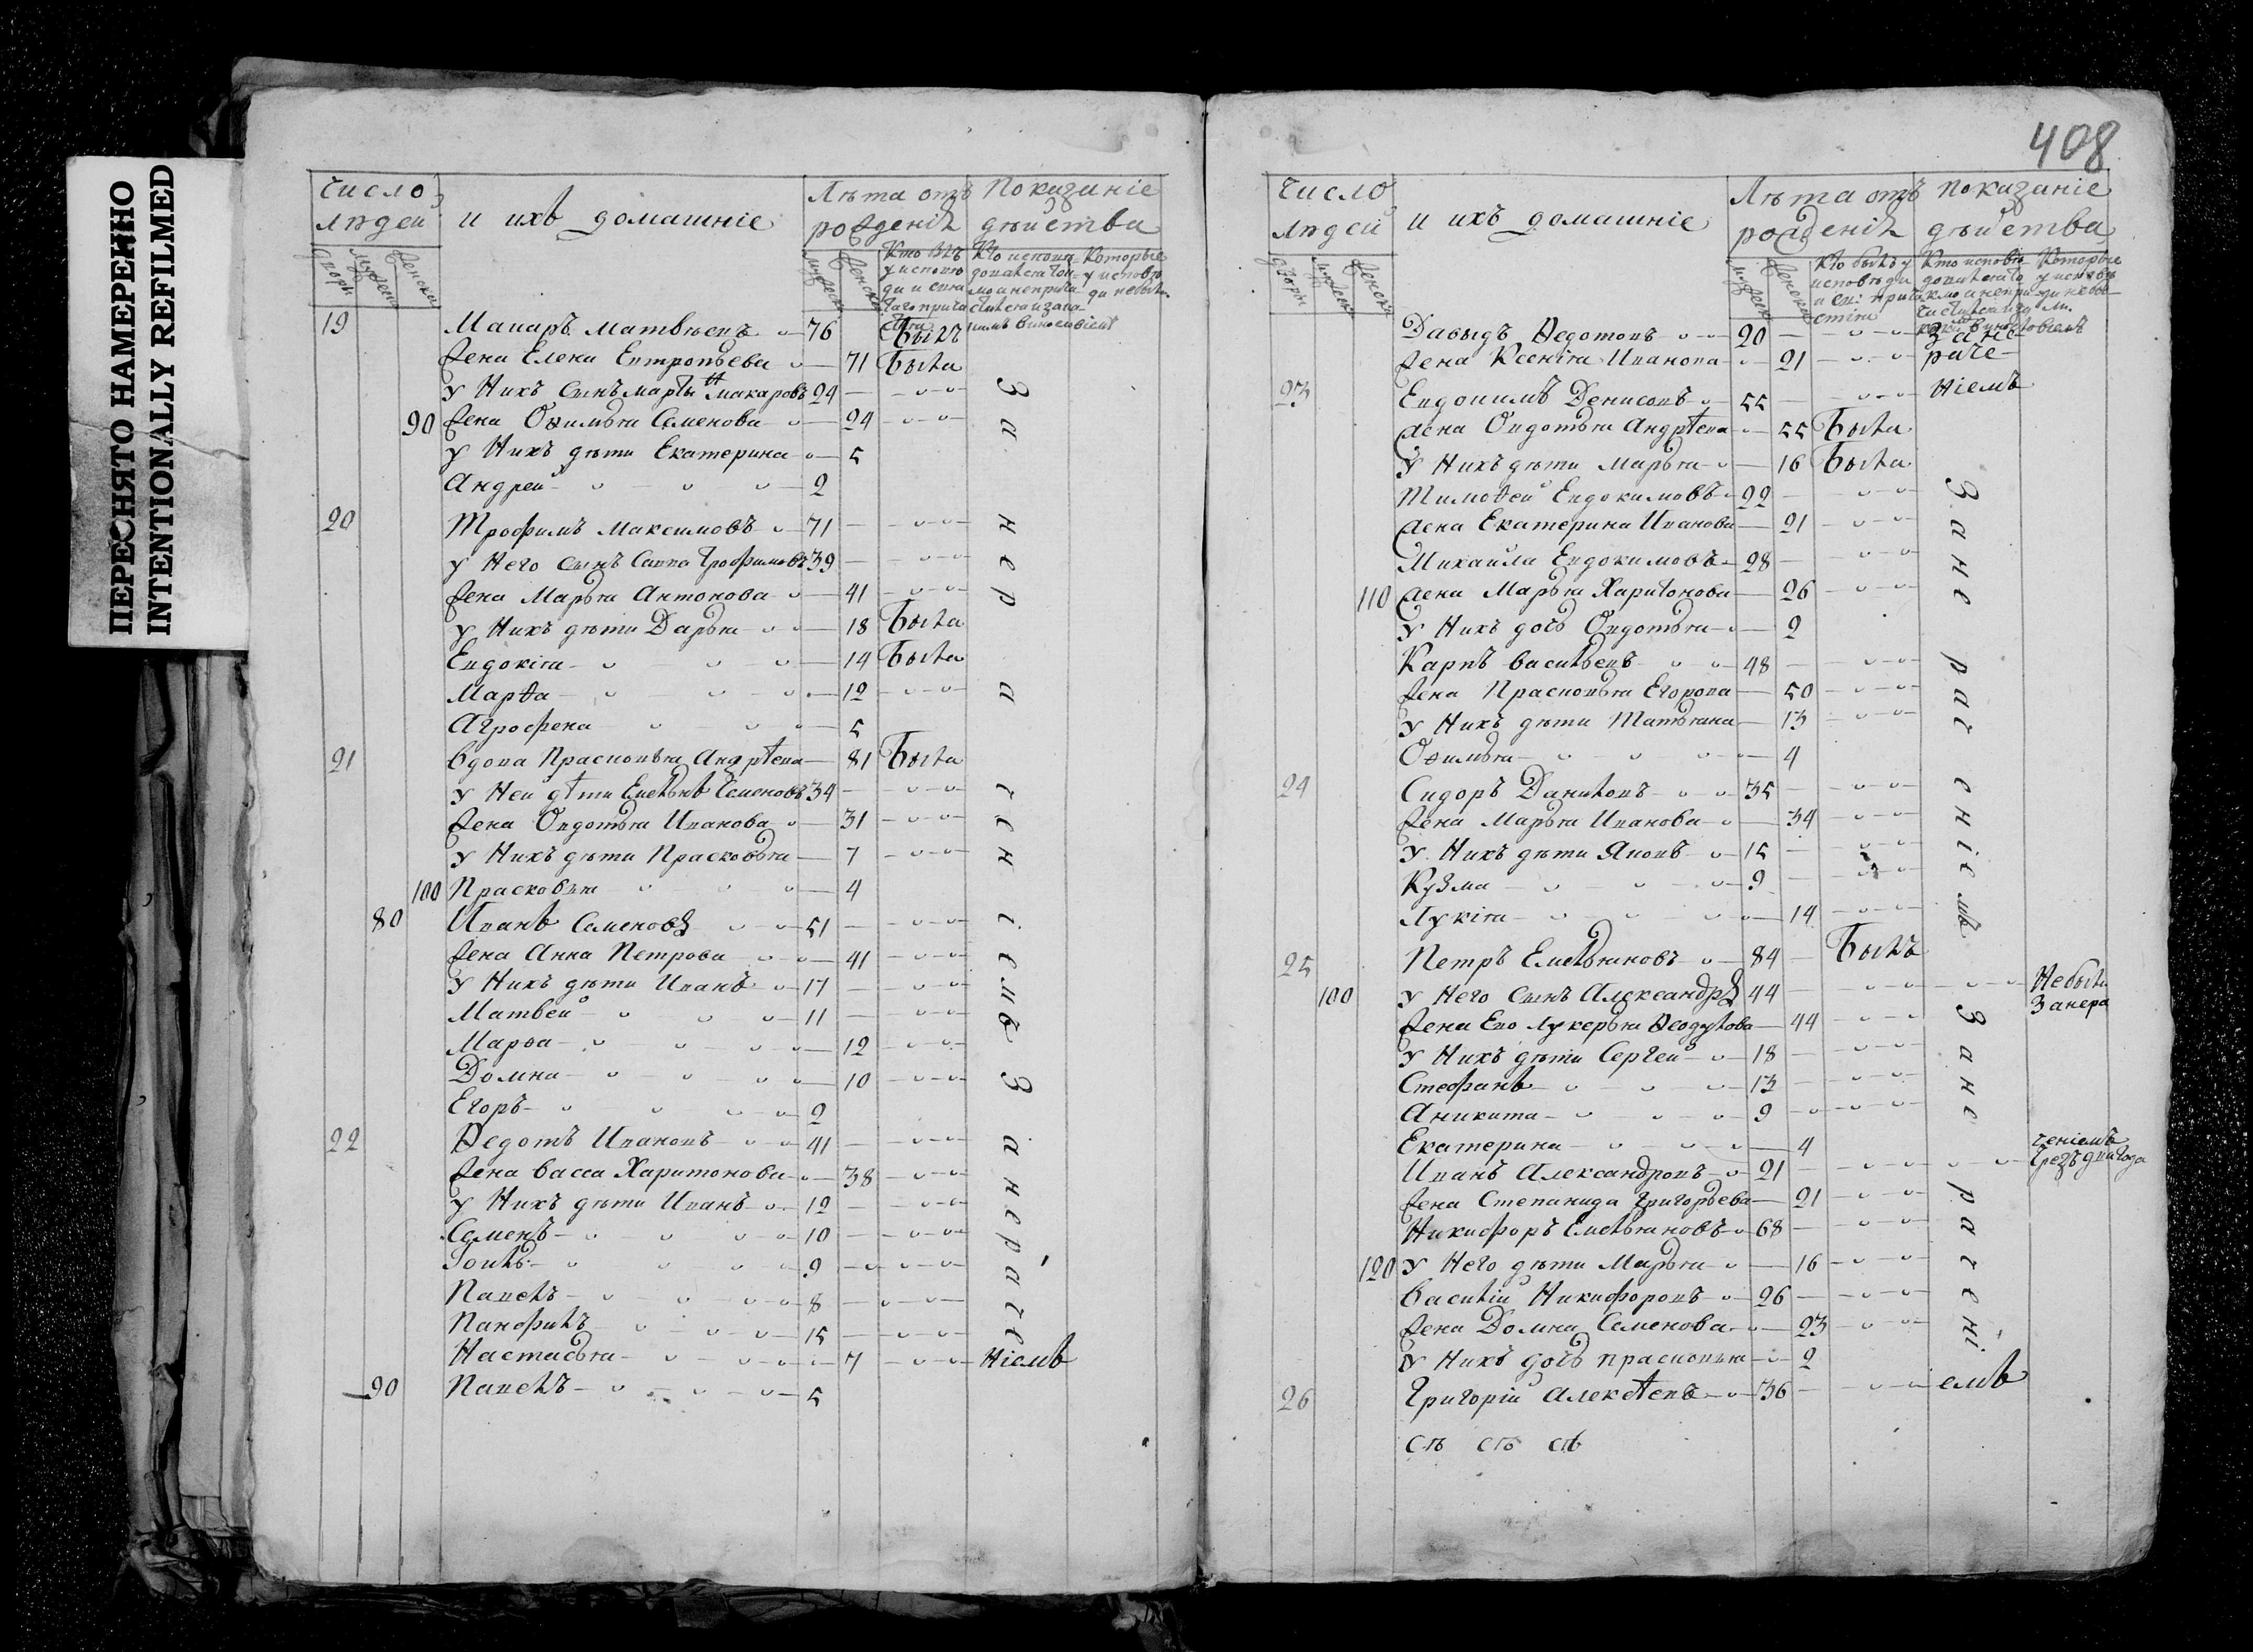 ПЕРЕСНЯТО НАМЕРЕННО
INTENTIONALLY REFILMED
Число людей и ихъ домашніе Лѣта отъ рожденія Показаніе дѣйства
дворы мужеска женска мужеска женска
19 Макаръ Матвѣевъ 76 Былъ
Жена Елена Евтропьева 71 Была
у Нихъ Сынъ Мартынъ Макаровъ 24
90 Жена Офимья Семенова 24
у Нихъ дѣти Екатерина 5
Андрей 2
20 Трофимъ Максимовъ 71
у Него Сынъ Савва Трофимовъ 39
Жена Марья Антонова 41
у Нихъ дѣти Дарья 18 Была
Евдокія 14 Была
Марѳа 12
Агрофена 5
21 вдова Прасковья Андрѣева 81 Была
у Ней дѣти Емельянъ Семеновъ 34
Жена Овдотья Иванова 31
у Нихъ дѣти Прасковья 7
100 Прасковья 4
80 Иванъ Семеновъ 51
Жена Анна Петрова 41
у Нихъ дѣти Иванъ 17
Матвей 11
Марѳа 12
Домна 10
Егоръ 2
22 Ѳедотъ Ивановъ 41
Жена васса Харитонова 38
у Нихъ дѣти Иванъ 12
Семенъ 10
9
Павелъ 8
Панфилъ 15
Настасья 7
90 Павелъ 5
За нерачениемъ За нерачениемъ
408
Число людей и ихъ домашніе Лѣта отъ рожденія показаніе дѣйства
дворы мужеска женска мужеска женска
Давыдъ Ѳедотовъ 20 За не
Жена Ксенія Иванова 21 раче
23 Евдокимъ Денисовъ 55 ніемъ
жена Овдотья Андрѣева 55 Была
у Нихъ дѣти Марья 16 Была
Тимоѳей Евдокимовъ 22
жена Екатерина Иванова 21
Михайла Евдокимовъ 28
110 жена Марья Харитонова 26
у Нихъ дочь Овдотья 2
Карпъ васильевъ 48
Жена Прасковья Егорова 50
у Нихъ дѣти Татьяна 13
Офимья 4
24 Сидоръ Даниловъ 35
Жена Марья Иванова 34
у Нихъ дѣти Яковъ 15
Кузма 9
Лукія 14
25 Петръ Емельяновъ 84 Былъ
100 у Него Сынъ Александръ 44 Небылъ
Жена Ево Лукерья Ѳеодулова 44 Занера
у Нихъ дѣти Сергей 18
Стефанъ 13
Аникита 9
Екатерина 4 ченіемъ
Иванъ Александровъ 21 Чрезъ два года
Жена Степанида Григорьева 21
Никифоръ Емельяновъ 68
120 у Него дѣти Марья 16
василій Никифоровъ 26
Жена Домна Семенова 23
у Нихъ дочь прасковья 2
26 Григорій Алексѣевъ 36
За нерачениемъ За нерачениемъ